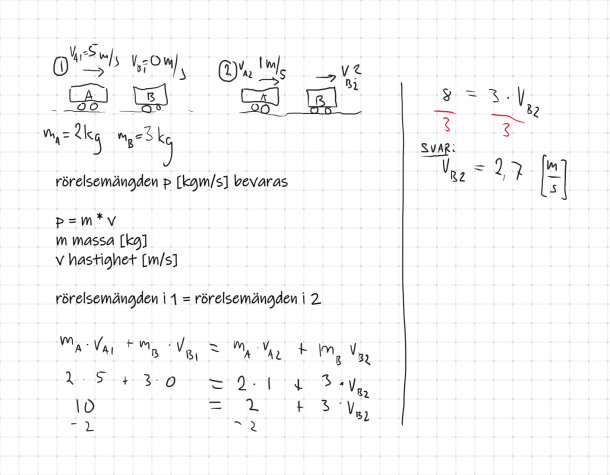 ① V_A1 = 5 m/s V_B1 = 0 m/s
A B
m_A = 2 kg m_B = 3 kg
② V_A2 1 m/s V_B2 ?
A B
rörelsemängden p [kgm/s] bevaras
p = m * v
m massa [kg]
v hastighet [m/s]
rörelsemängden i 1 = rörelsemängden i 2
m_A · V_A1 + m_B · V_B1 = m_A · V_A2 + m_B V_B2
2 · 5 + 3 · 0 = 2 · 1 + 3 · V_B2
10 = 2 + 3 · V_B2
-2 -2
8 = 3 · V_B2
3 3
SVAR:
V_B2 = 2,7 [m/s]